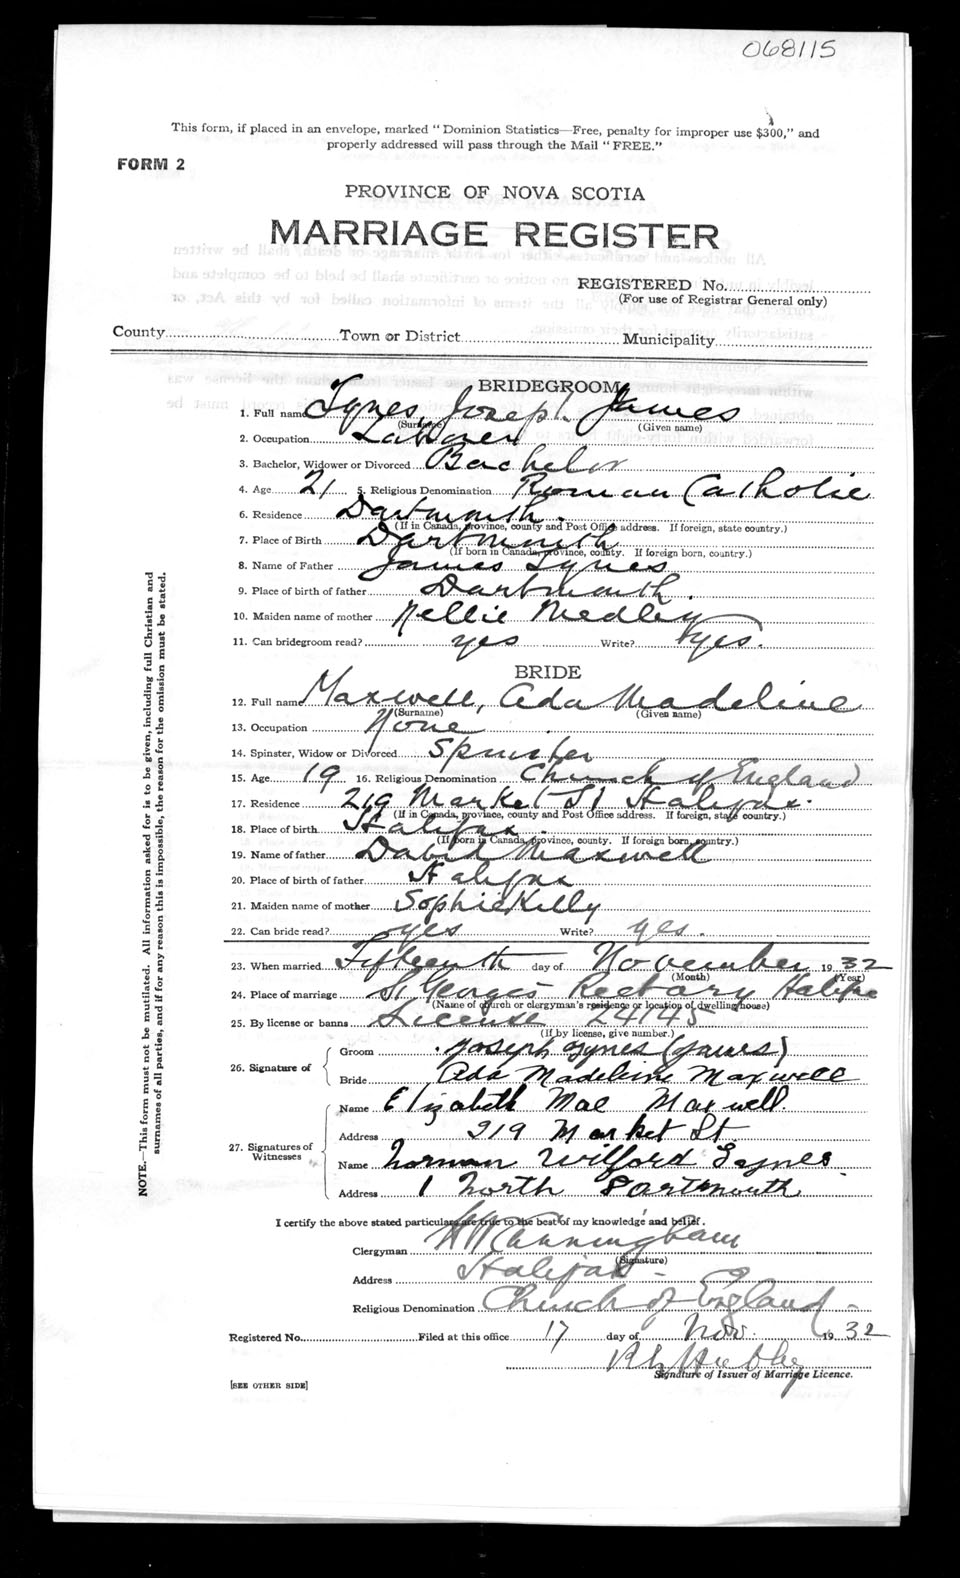 068115
This form, if placed in an envelope, marked "Dominion Statistics—Free, penalty for improper use $300," and
properly addressed will pass through the Mail "FREE."
FORM 2
PROVINCE OF NOVA SCOTIA
MARRIAGE REGISTER
REGISTERED No.
(For use of Registrar General only)
County Town or District Municipality
BRIDEGROOM
1. Full name Tynes, Joseph James
(Surname) (Given name)
2. Occupation Laborer
3. Bachelor, Widower or Divorced Bachelor
4. Age 21 5. Religious Denomination Roman Catholic
6. Residence Dartmouth.
(If in Canada, province, county and Post Office address. If foreign, state country.)
7. Place of Birth Dartmouth
(If born in Canada, province, county. If foreign born, country.)
8. Name of Father James Tynes
9. Place of birth of father Dartmouth.
10. Maiden name of mother Nellie Medley
11. Can bridegroom read? yes Write? yes.
BRIDE
12. Full name Maxwell, Ada Madeline
(Surname) (Given name)
13. Occupation None
14. Spinster, Widow or Divorced Spinster
15. Age 19 16. Religious Denomination Church of England
17. Residence 219 Market St Halifax.
(If in Canada, province, county and Post Office address. If foreign, state country.)
18. Place of birth Halifax.
(If born in Canada, province, county. If foreign born, country.)
19. Name of father David Maxwell
20. Place of birth of father Halifax
21. Maiden name of mother Sophie Kelly
22. Can bride read? yes Write? yes.
23. When married Fifteenth day of November 1932
(Month) (Year)
24. Place of marriage St Georges Rectory Halifax
(Name of church or clergyman's residence or location of dwelling house)
25. By license or banns License 24145
(If by license, give number.)
26. Signature of
Groom Joseph Tynes (James)
Bride Ada Madeline Maxwell
27. Signatures of Witnesses
Name Elizabeth Mae Maxwell.
Address 219 Market St
Name Norman Wilford Tynes
Address 1 North Dartmouth
I certify the above stated particulars are true to the best of my knowledge and belief.
Clergyman Cunningham
(Signature)
Address Halifax -
Religious Denomination Church of England -
Registered No. Filed at this office 17 day of Nov. 1932
Signature of Issuer of Marriage Licence.
[SEE OTHER SIDE]
NOTE.—This form must not be mutilated. All information asked for is to be given, including full Christian and
surnames of all parties, and if for any reason this is impossible, the reason for the omission must be stated.